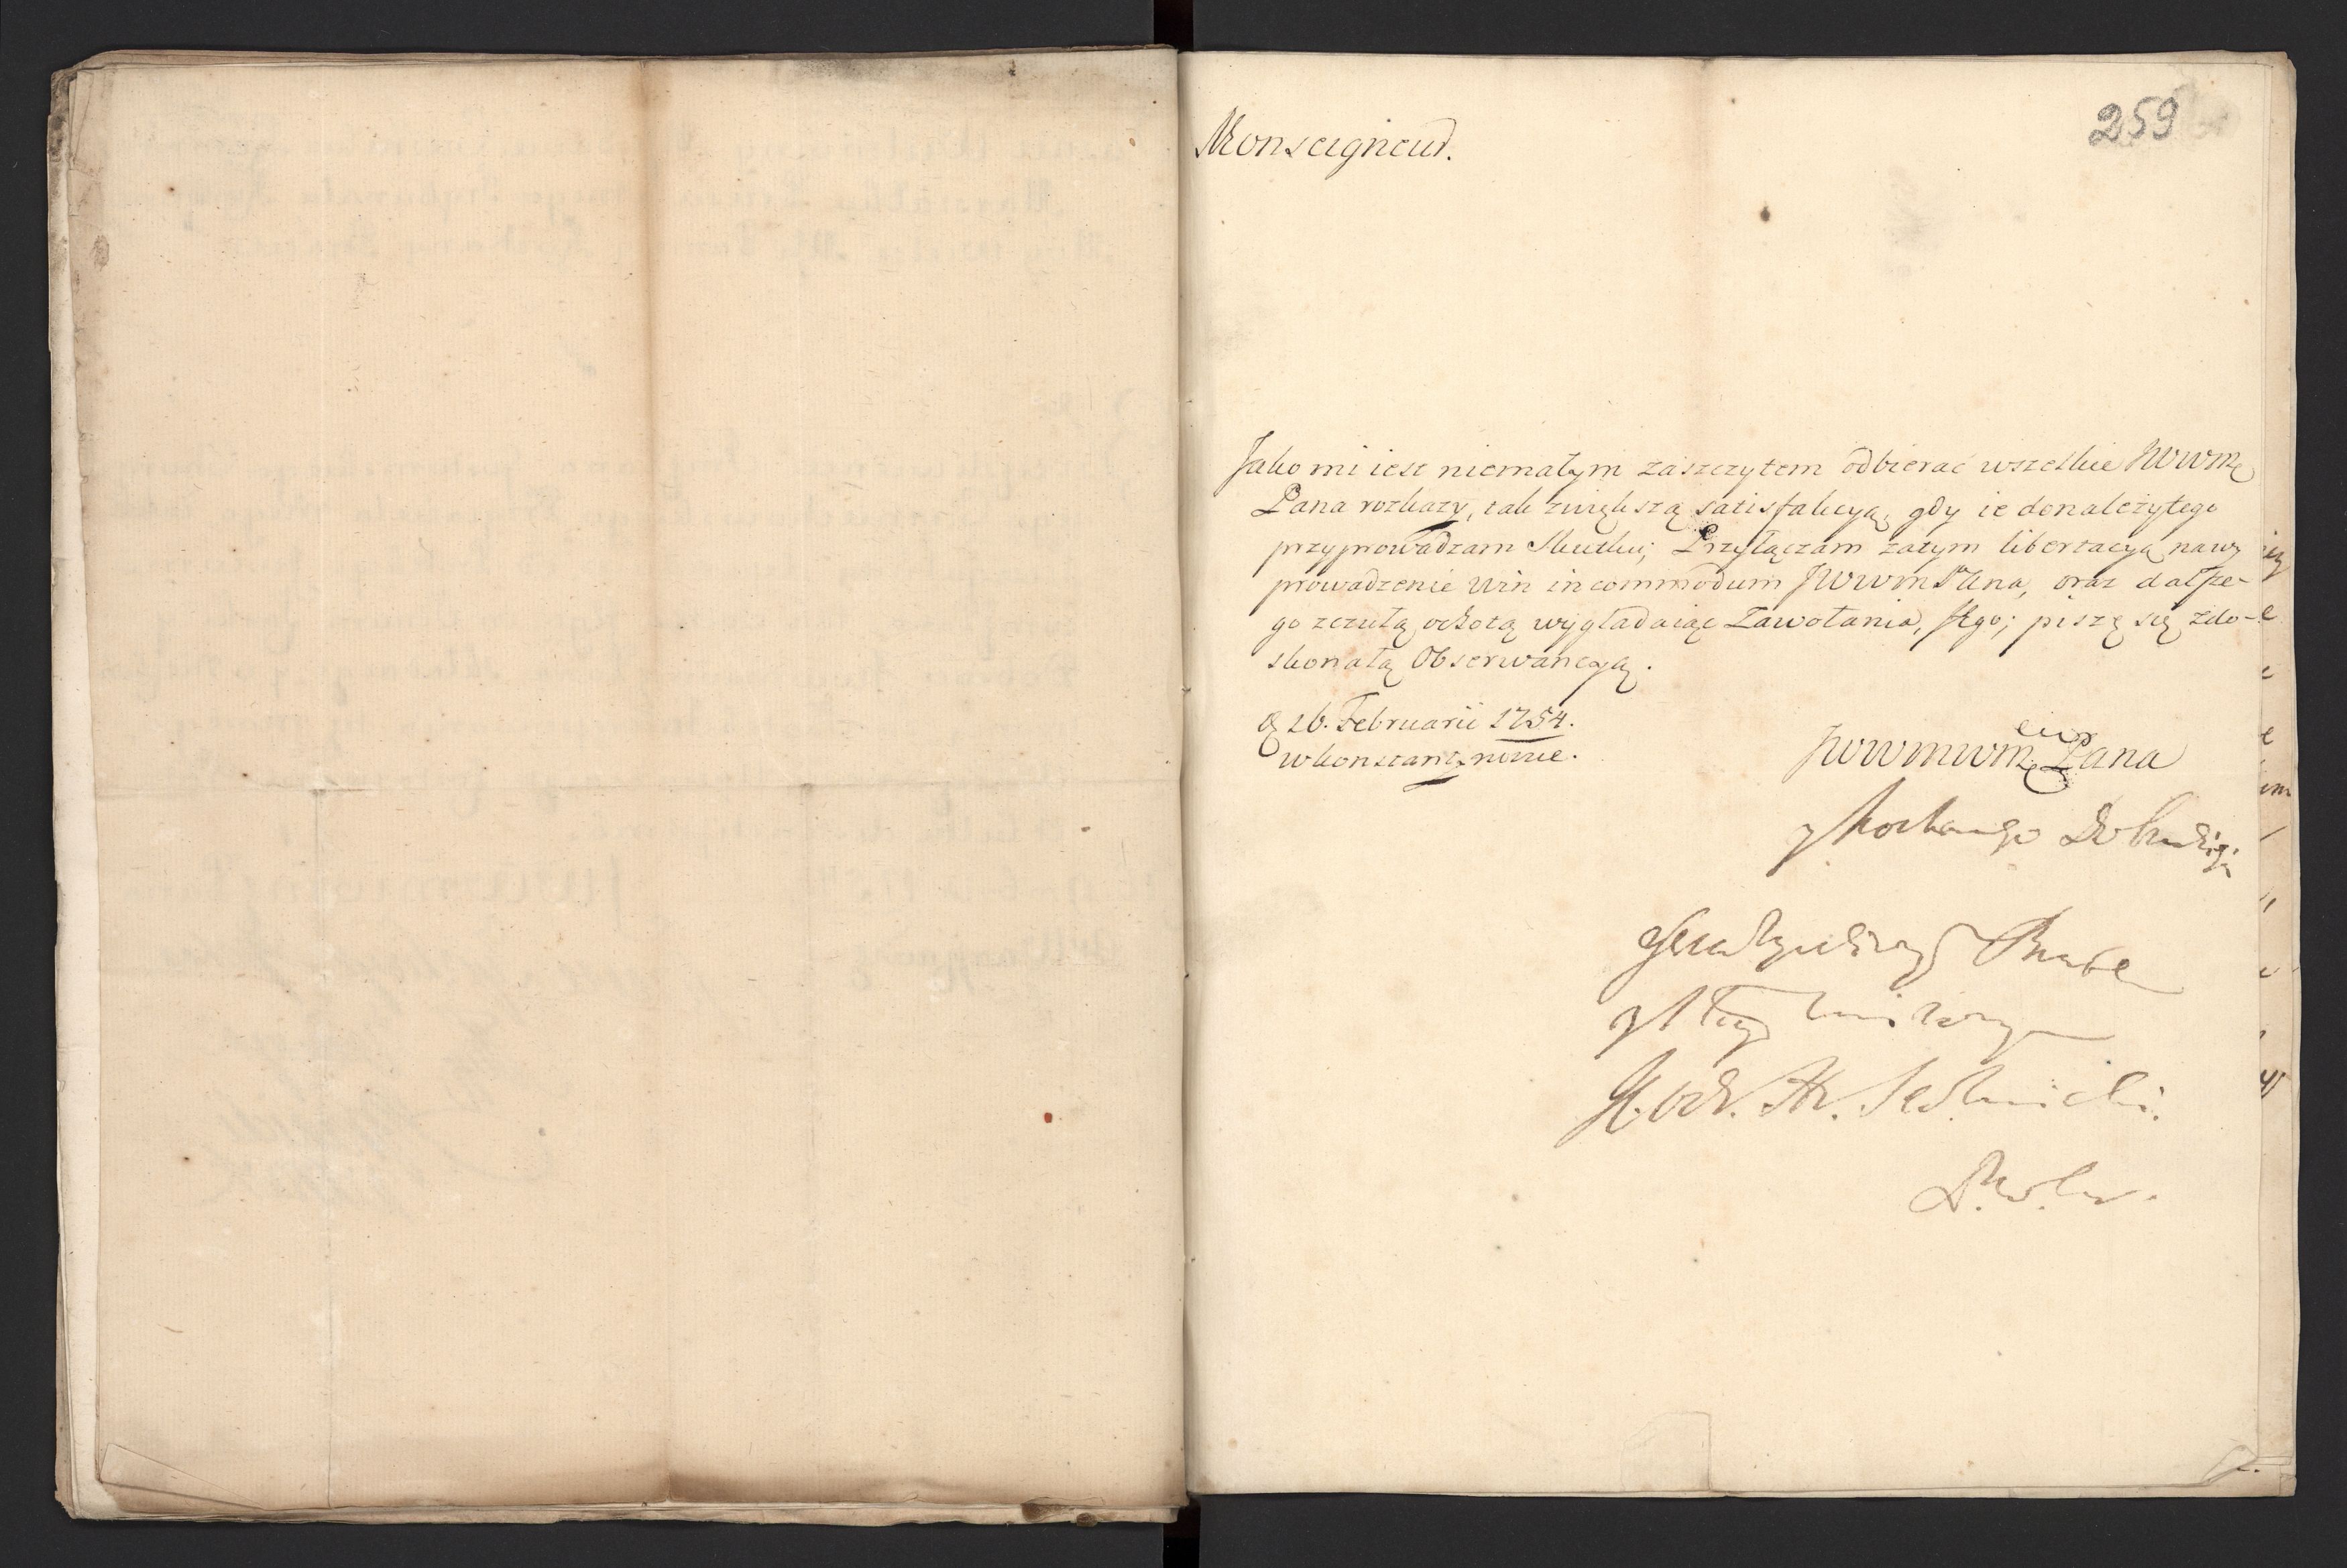 259
Monseigneur.
Jako mi iest niemałym zaszczytem odbierać wszelkie JWWMę
Pana rozkazy, tak zwiększą satisfakcyą, gdy ie donależytego
przyprowadzam skutku; Przyłączam zatym libertacyą nawy
prowadzenie Win in commodum JWWMPana, oraz dalsze-
go zczułą ochotą wyglądaiąc Zawołania, piszę się zdo-
skonałą Obserwancyą.
D 26. Februarii 1754.
wKonstantynowie.
JWWMWMę Pana
y
Sługą
Sedlnicki.